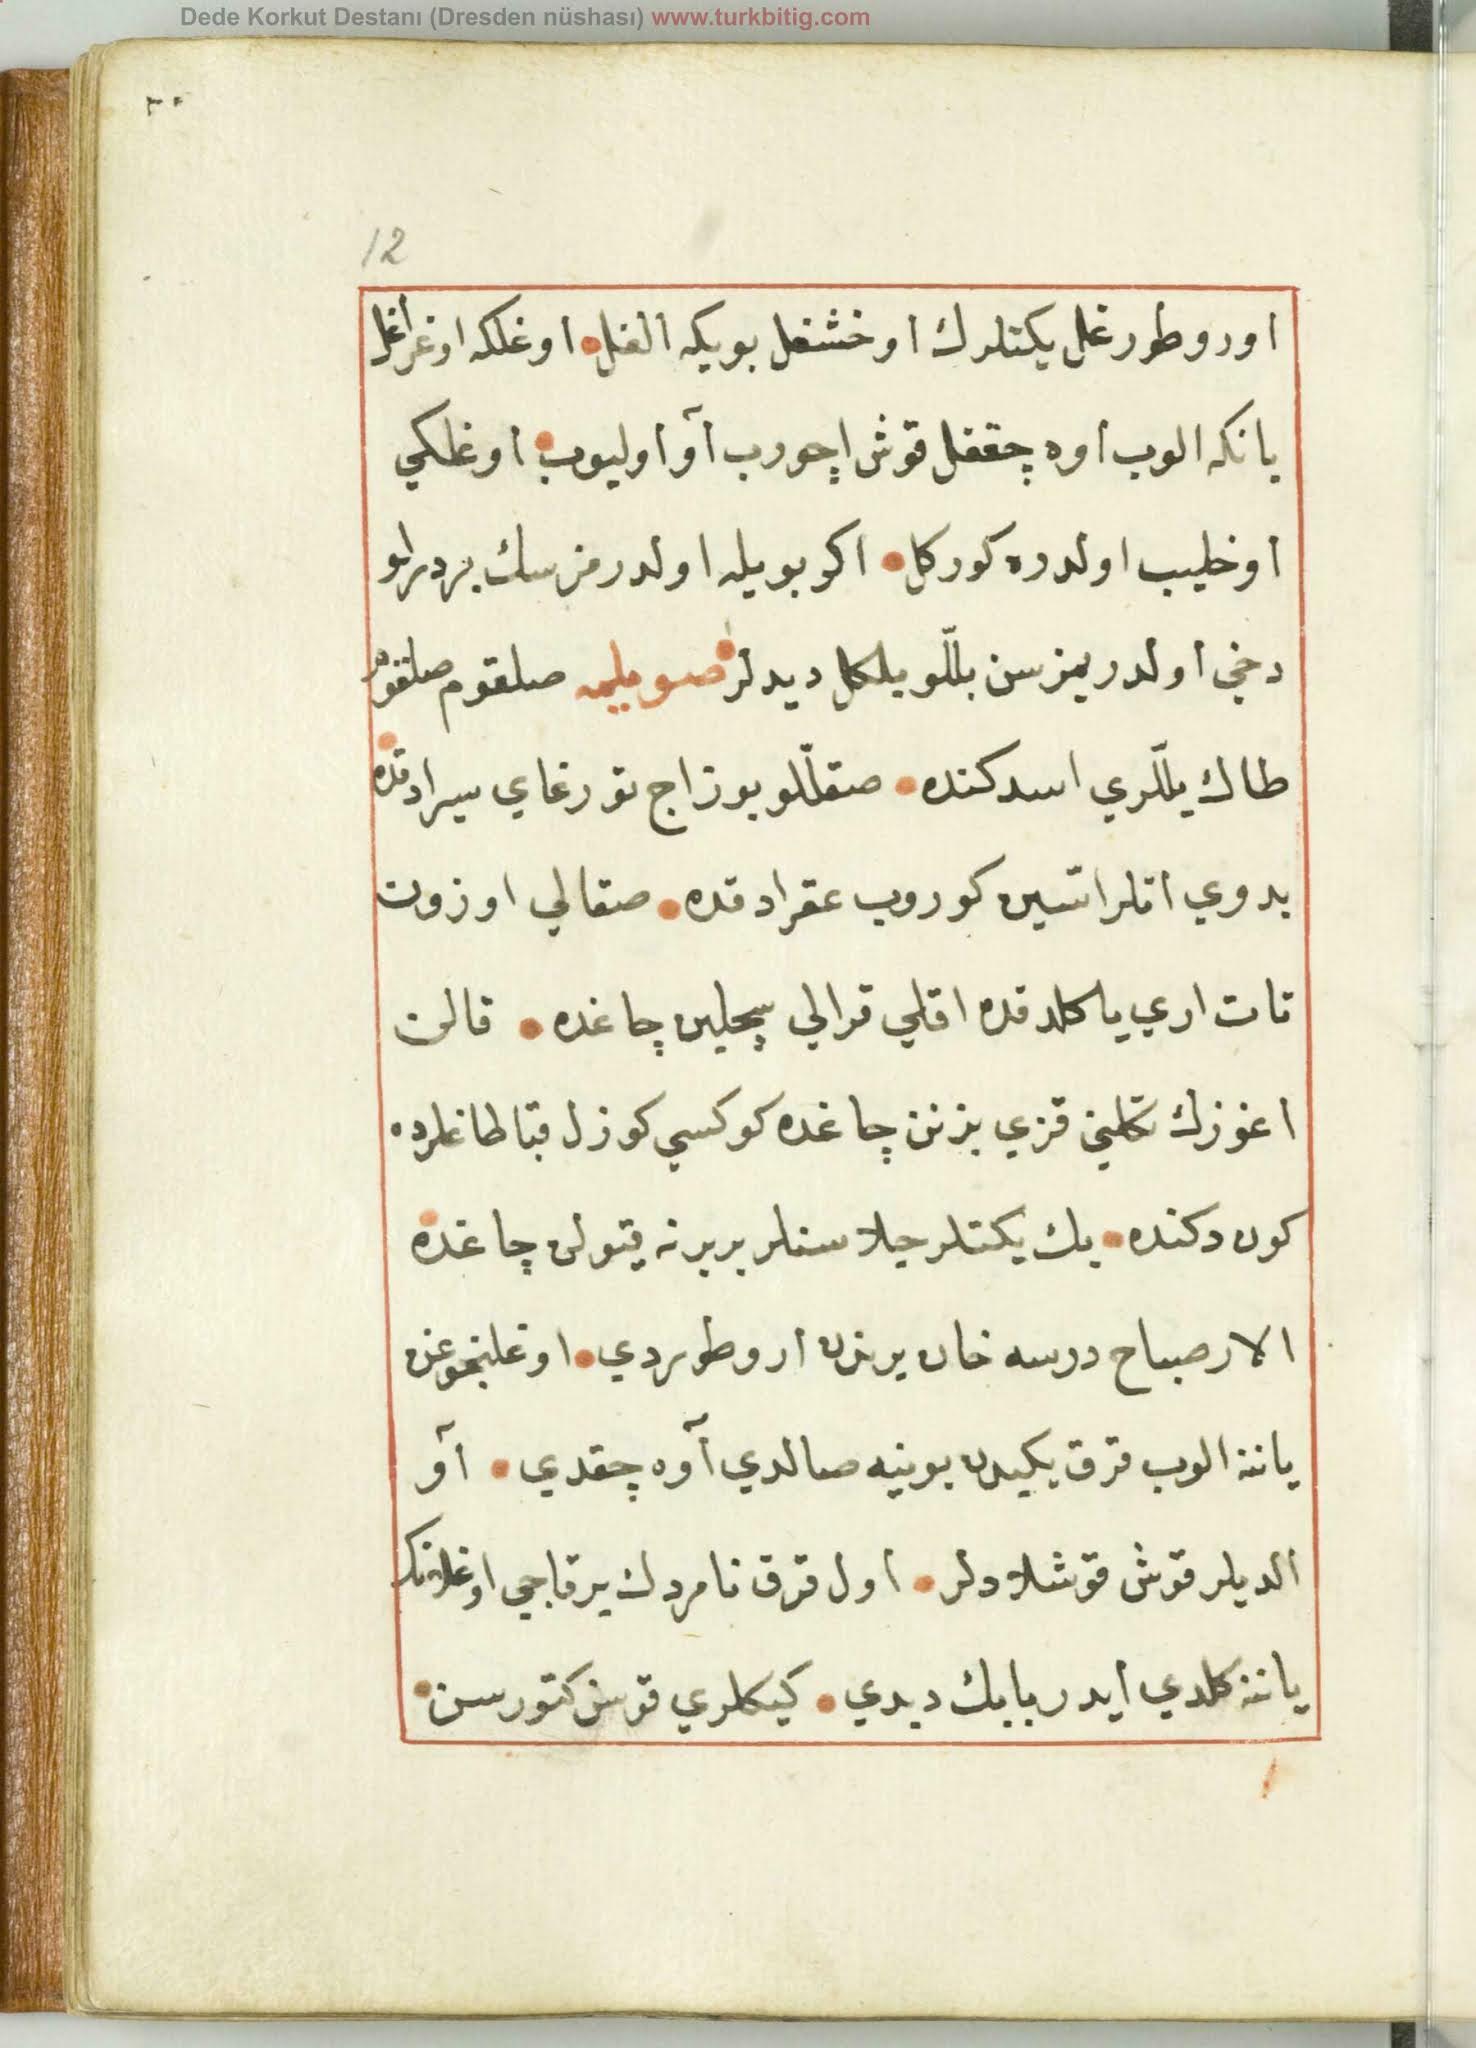 Dede Korkut Destanı (Dresden nüshası) www.turkbitig.com
12
اورو طورغل يكتلرك اوخشغل بويكه الغل اوغلكه اوغراغل
يانكه الوب اوه چقغل قوش اچورب آو اوليوب اوغلكي
اوخليب اولدره كوركل اكر بويله اولدرمزسك بر درلو
دخي اولدريمزسن بللو بلكل ديدلر صويلمه صلقوم صلقوم
طاك يللري اسدكنده صقللو بوزاج تورغاي سيرادقده
بدوي اتلر اتسين كوروب عقرادقده صقالي اوزون
تات اري ياكلدقده اقلي قرالي سچلين چاغده قالن
اغوزك كلني قزي بزنن چاغده كوكسي كوزل قبا طاغلرده
كون دكنده بك يكتلر جلاسنلر بربرنه قيولن چاغده
الار صباح درسه خان يرندن اروطردي اوغلنجوغن
ياننه الوب قرق يكيدن بوينه صالدي آوه چقدي آو
الديلر قوش قوشلادلر اول قرق نامردك برقاجي اوغلانك
ياننه كلدي ايدر بابك ديدي كيكلري قوسن كتورسن